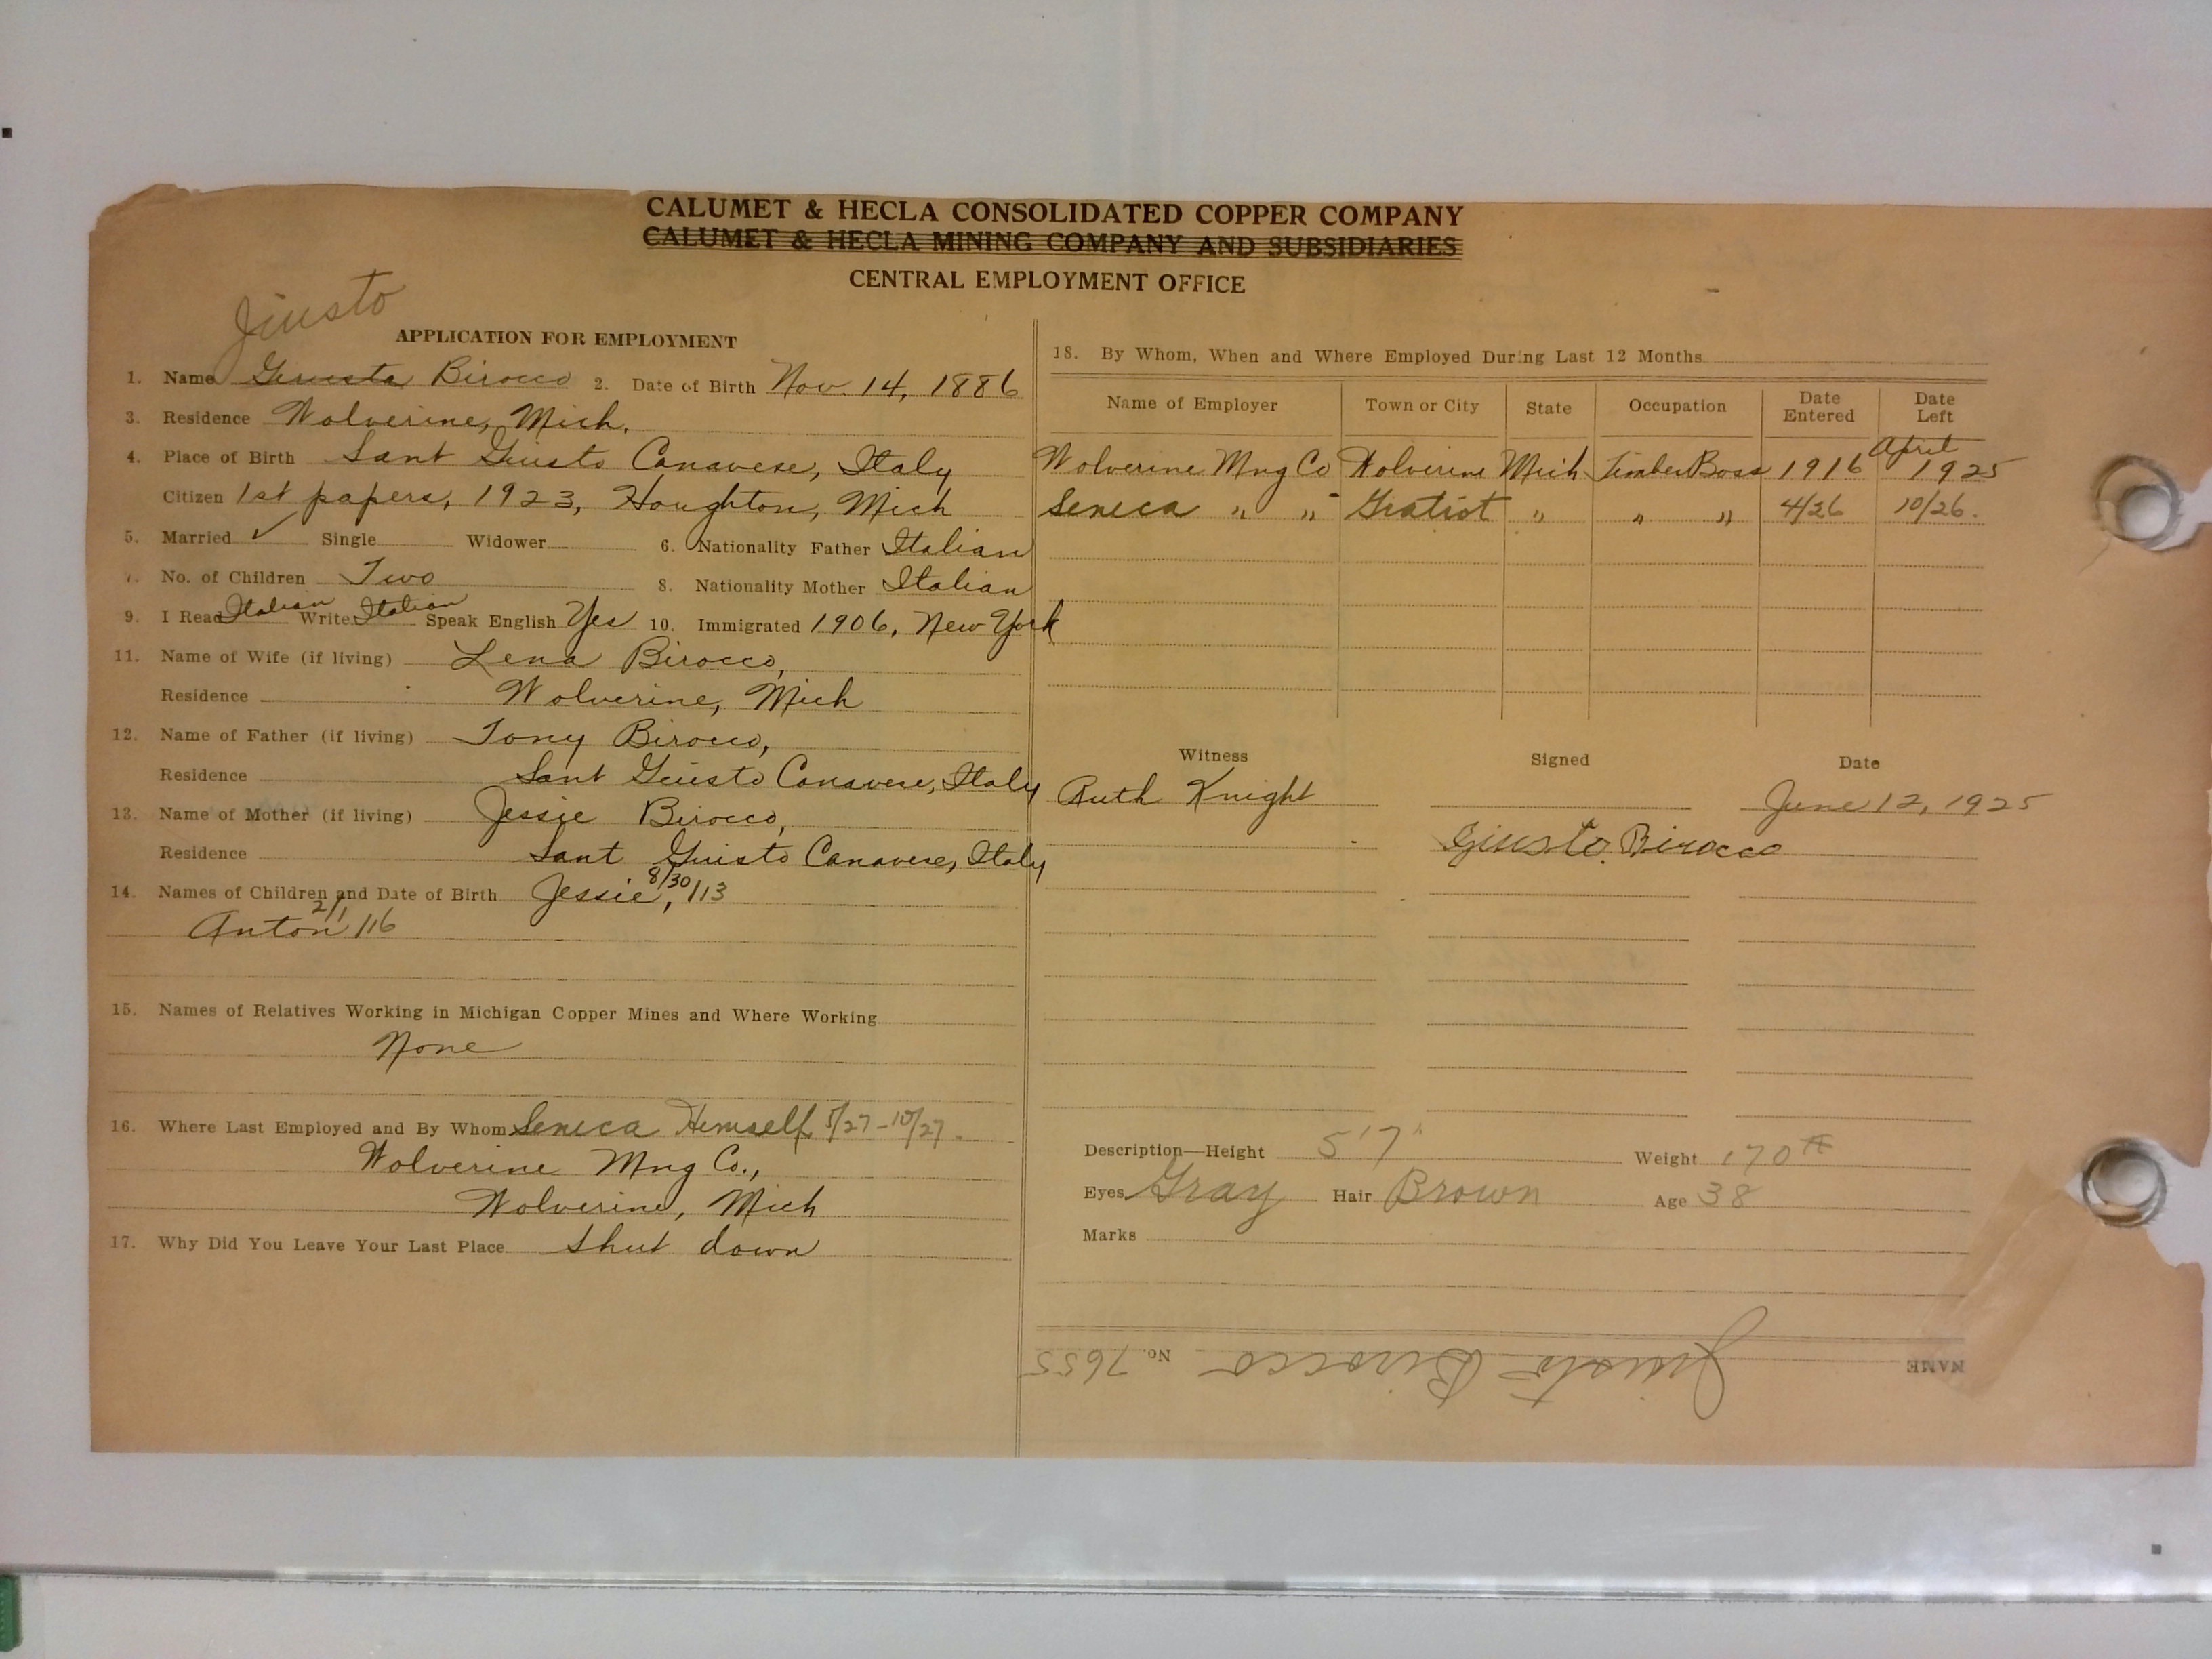 CALUMET & HECLA CONSOLIDATED COPPER COMPANY
CALUMET & HECLA MINING COMPANY AND SUBSIDIARIES
CENTRAL EMPLOYMENT OFFICE
Giusto
APPLICATION FOR EMPLOYMENT
1. Name Giusta Birocco 2. Date of Birth Nov. 14, 1886
3. Residence Wolverine, Mich.
4. Place of Birth Sant Giusto Canavese, Italy
Citizen 1st papers, 1923, Houghton, Mich
5. Married ✓ Single Widower 6. Nationality Father Italian
7. No. of Children Two 8. Nationality Mother Italian
9. I Read Italian Write Italian Speak English Yes 10. Immigrated 1906, New York
11. Name of Wife (if living) Lena Birocco,
Residence Wolverine, Mich
12. Name of Father (if living) Tony Birocco,
Residence Sant Giusto Canavese, Italy
13. Name of Mother (if living) Jessie Birocco,
Residence Sant Giusto Canavese, Italy
14. Names of Children and Date of Birth Jessie, 8/30/13
Anton 2/1/16
15. Names of Relatives Working in Michigan Copper Mines and Where Working
None
16. Where Last Employed and By Whom Seneca Himself /27-10/27.
Wolverine Mng Co.,
Wolverine, Mich
17. Why Did You Leave Your Last Place Shut down
18. By Whom, When and Where Employed During Last 12 Months
Name of Employer Town or City State Occupation Date Entered Date Left
Wolverine Mng Co Wolverine Mich Timber Boss 1916 April 1925
Seneca " " Gratiot " " " 4/26 10/26.
Witness Signed Date
Ruth Knight June 12, 1925
Giusto Birocco
Description—Height 5'7" Weight 170#
Eyes Gray Hair Brown Age 38
Marks
NAME Giusto Birocco No. 7655